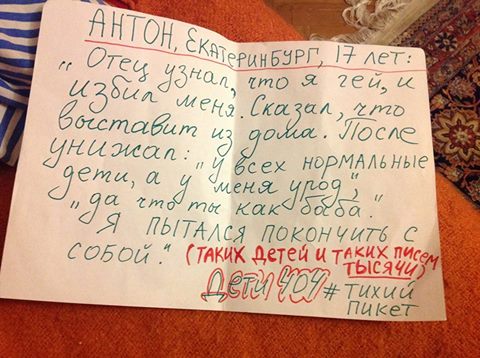 АНТОН, ЕКАТЕРИНБУРГ, 17 ЛЕТ:
„Отец узнал, что я гей, и
избил меня. Сказал, что
выставит из дома. После
унижал: „у всех нормальные
дети, а у меня урод",
„да что ты как баба."
Я пытался покончить с
собой." (ТАКИХ ДЕТЕЙ И ТАКИХ ПИСЕМ
ТЫСЯЧИ)
ДЕТИ 404 #ТИХИЙ
ПИКЕТ